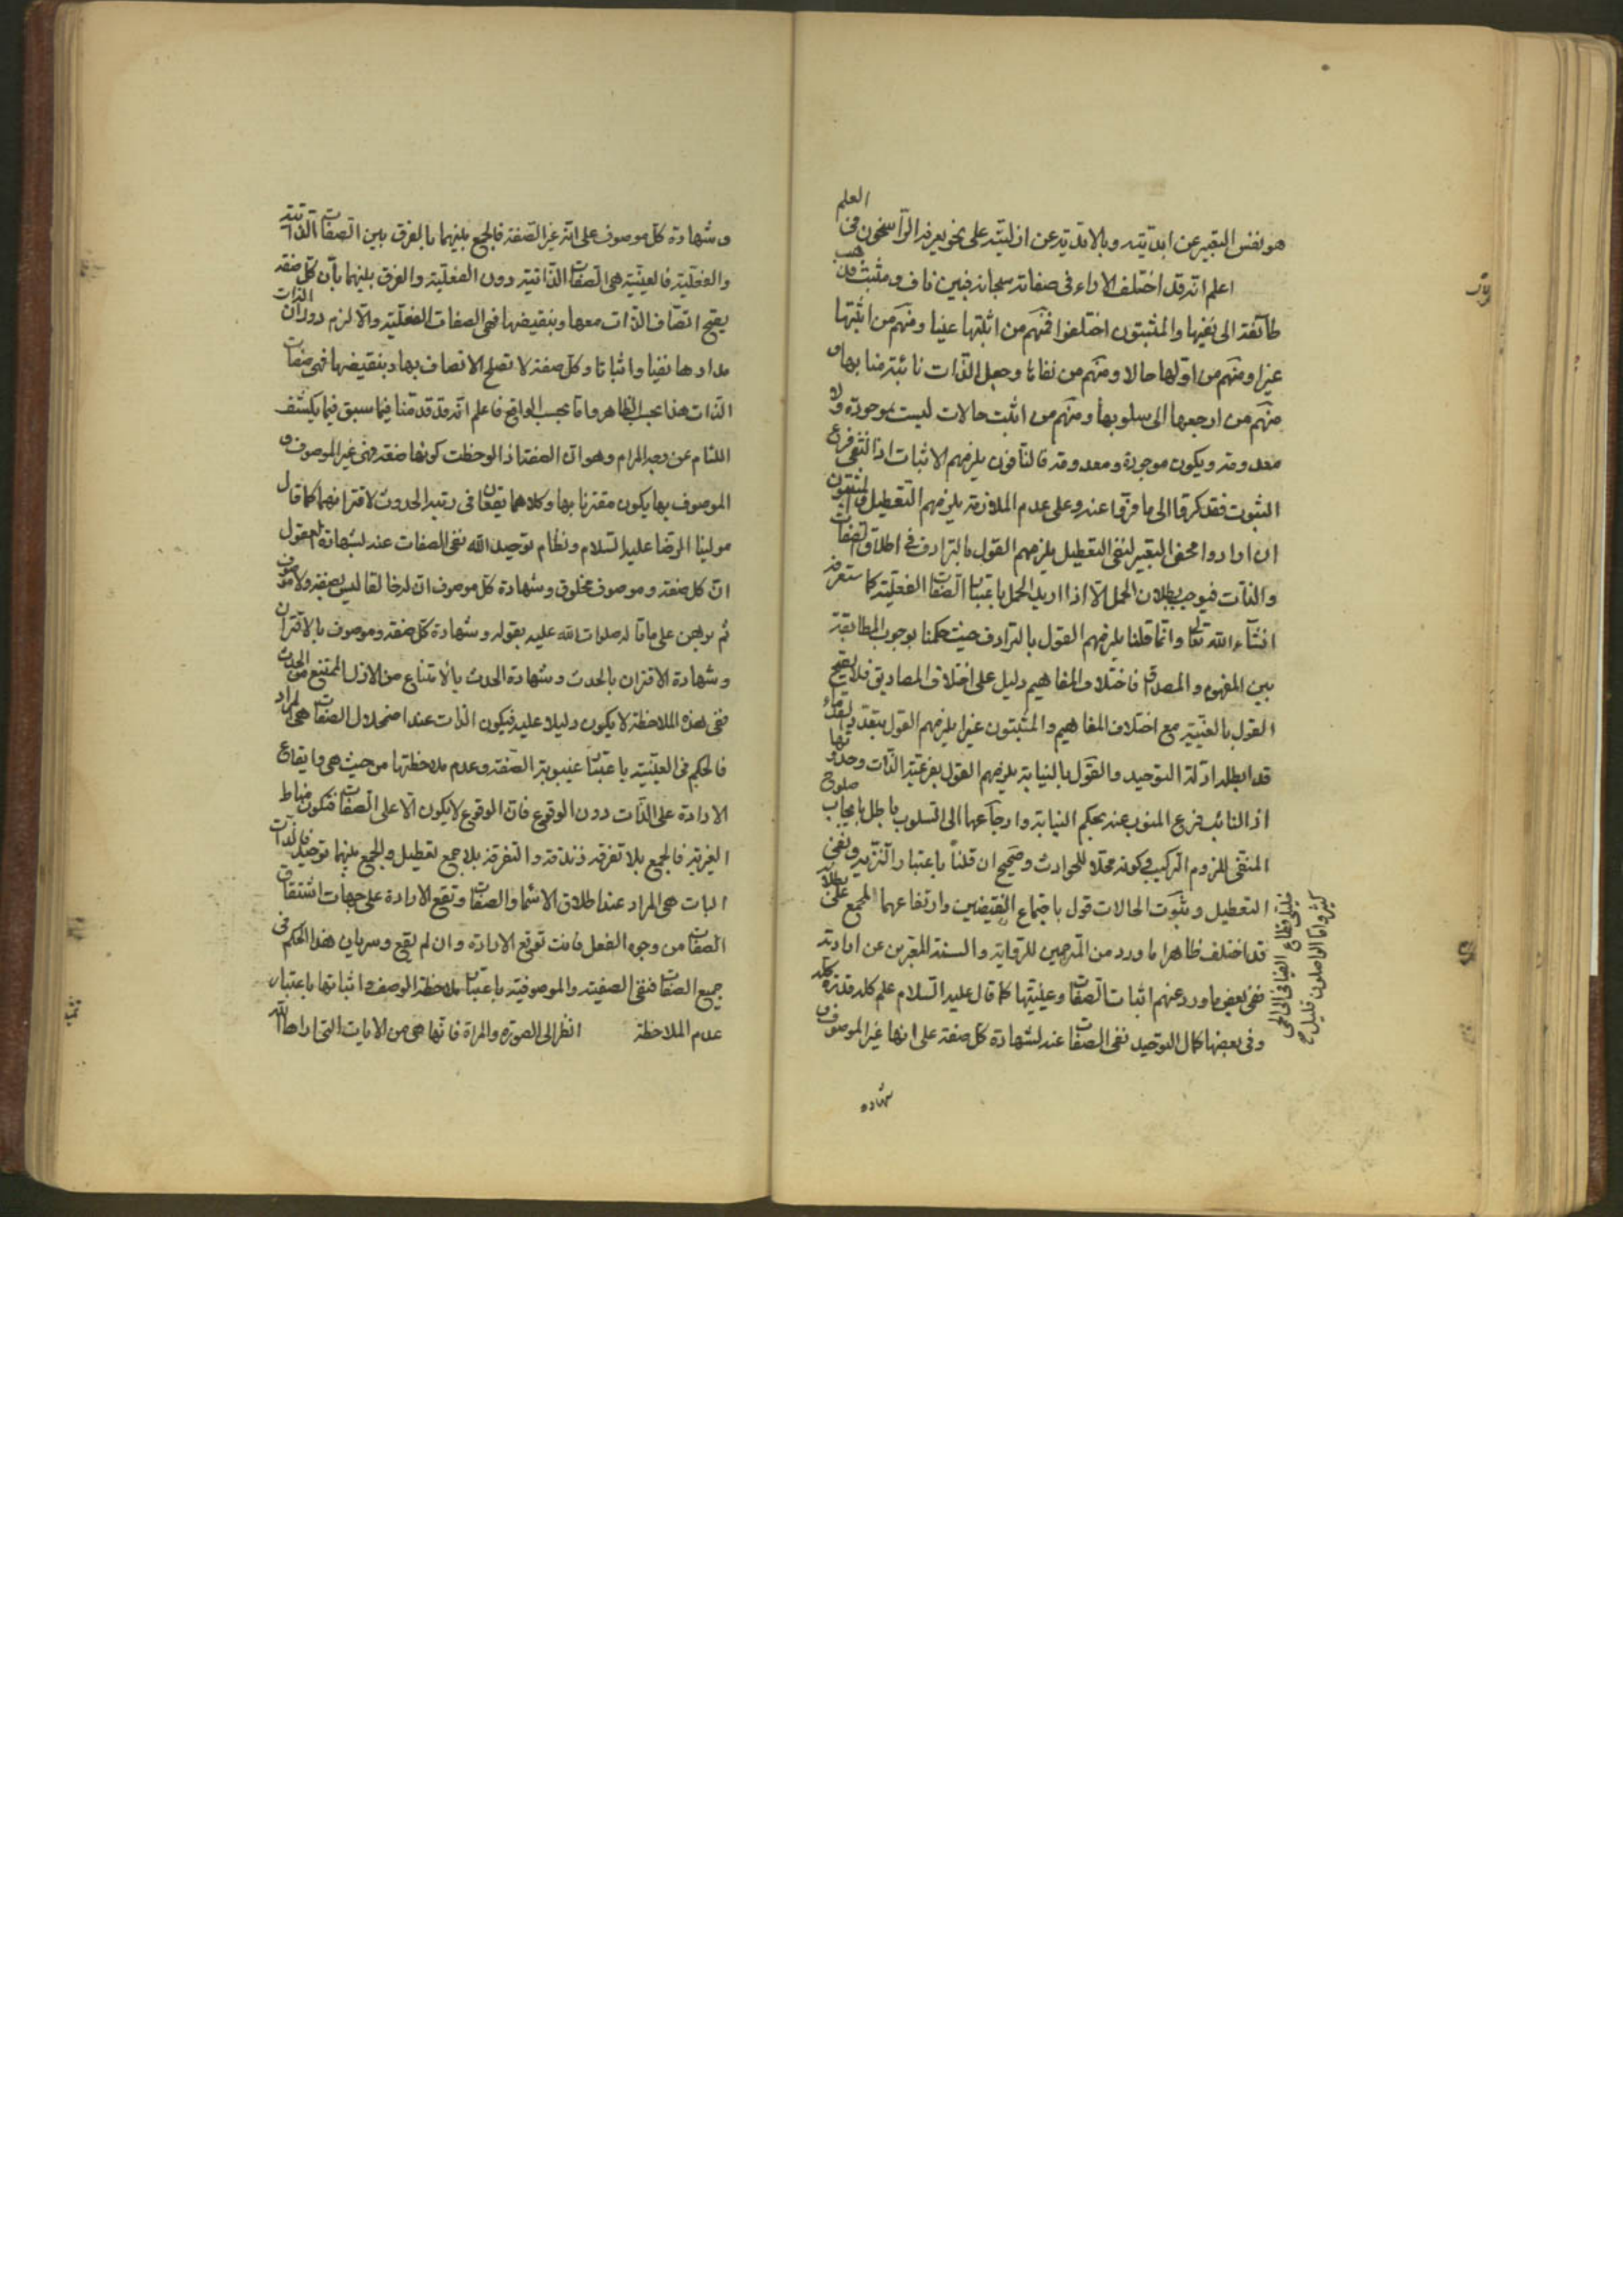 هو نفس التعبير عن ابديّته وبالابديّة عن ازليّته على نحو يعرفه الرّاسخون فى العلم
اعلم انّه قد اختلف الاراء فى صفاته سبحانه فبين ناف ومثبت فذهب
طائفة الى نفيها والمثبتون اختلفوا فمنهم من اثبتها عينا ومنهم من اثبتها
غيرا ومنهم من اوّلها حالا ومنهم من نفاها وجعل الذّات نائبة منابها و
منهم من ارجعها الى سلوبها ومنهم من اثبت حالات ليست بموجودة ولا
معدومة ويكون موجودة ومعدومة فالنّافون يلزمهم الاثبات اذ النّفى فرع
الثبوت فقد كرّوا الى ما فرّوا عنه وعلى عدم الملازمة يلزمهم التّعطيل والمثبتون
ان ارادوا محض التعبير لنفى التعطيل يلزمهم القول بالترادف فى اطلاق الصّفات
والذّات فيوجب بطلان الحمل الّا اذا اريد الحمل باعتبار الصّفات الفعليّة كما ستعرفه
انشآء الله تعالى وانّما قلنا يلزمهم القول بالترادف حيث حكمنا بوجوب المطابقة
بين المفهوم والمصداق فاختلاف المفاهيم دليل على اختلاف المصاديق فلا يصحّ
القول بالعينيّة مع اختلاف المفاهيم والمثبتون غيرا يلزمهم القول بتعدّد القدماء
قد ابطله ادلّة التوحيد والقول بالنيابة يلزمهم القول بفرعيّة الذّات وحدوثها
اذ النائب فرع المنوب عنه بحكم النيابة وارجاعها الى السّلوب باطل بايجاب صلوح
المنفى للزوم التركيب وكونه محلّا للحوادث وصحيح ان قلنا باعتبار التّنزيه ونفى
التعطيل وثبوت الحالات قول باجتماع النقيضين وارتفاعهما المجمع على بطلانه
قد اختلف ظاهرا ما ورد من المترجمين للرّواية والسنة المعبّرين عن ارادته
ففى بعض ما ورد عنهم اثبات الصّفات وعينيّتها كما قال عليه السّلام علم كلّه قدرة كلّه
وفى بعضها كمال التوحيد نفى الصّفات عنه لشهادة كلّ صفة على انها غير الموصوف
شهادة
وشهادة كلّ موصوف على انّه غير الصّفة فالجمع بينهما بالفرق بين الصّفات الذاتيّة
والفعليّة فالعينيّة هى الصّفات الذّاتيّة دون الفعليّة والفرق بينهما بأنّ كلّ صفة
يصحّ اتّصاف الذّات معها وبنقيضها فهى الصفات الفعليّة والّا لزم دوران الذات
مدارها نفيا واثباتا وكلّ صفة لا تصلح الاتصاف بها وبنقيضها فهى صفات
الذّات هذا بحسب الظاهر وامّا بحسب الواقع فاعلم انّه قد قدّمنا فيما سبق فيما يكشف
اللثام عن وجه المرام وهو انّ الصفة اذ الوحظت كونها صفة فهى غير الموصوف و
الموصوف بها يكون مقترنا بها وكلاهما يقعان فى رتبة الحدوث لاقترانهما كما قال
مولينا الرضا عليه السّلام ونظام توحيد الله نفى الصفات عنه لشهادة العقول
انّ كلّ صفة وموصوف مخلوق وشهادة كلّ موصوف انّ له خالقا ليس بصفة ولا موصوف
ثم برهن على ما قاله صلوات الله عليه بقوله وشهادة كلّ صفة وموصوف بالاقتران
وشهادة الاقتران بالحدث وشهادة الحدث بالامتناع من الازل الممتنع من الحدث
ففى هذه الملاحظة لا يكون دليلا عليه فيكون الذّات عند اضمحلال الصفات هى المراد
فالحكم فى العينيّة باعتبار غيبوبة الصّفة وعدم ملاحظتها من حيث هى وايقاع
الارادة على الذّات دون الوقوع فانّ الوقوع لا يكون الّا على الصّفات فتكون مناط
الغيريّة فالجمع بلا تفرقة زندقة والتفرقة بلا جمع تعطيل والجمع بينهما توحيد فالذّات
البات هى المراد عند اطلاق الاسماء والصفات وتقع الارادة على جهات اشتقاق
الصفات من وجوه الفعل فانت توقع الارادة وان لم يقع وسريان هذا الحكم فى
جميع الصفات فنفى الصفتيّة والموصوفيّة باعتبار ملاحظة الوصف واثباتها باعتبار
عدم الملاحظة انظر الى الصورة والمراة فانّها هى من الايات التى اراها الله